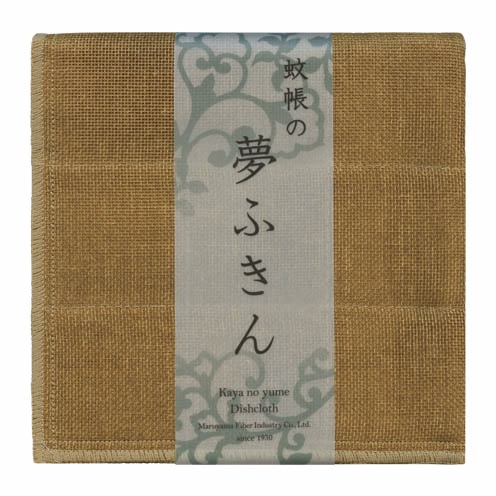 蚊帳の
夢ふきん
Kaya no yume
Dishcloth
Maruyama Fiber Industry Co., Ltd.
since 1930